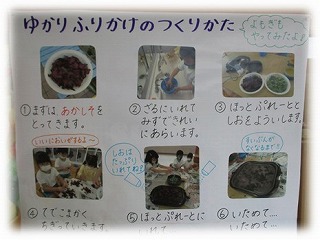 ゆかりふりかけのつくりかた
よもぎも
やってみたよ♪
①まずは、あかしそ
をとってきます。
②ざるにいれて
みずできれい
にあらいます。
③ほっとぷれーとと
しおをよういします。
いいにおいがするよ〜
しおは
たっぷり
いれてね♪
すいぶんが
なくなるまで♪
④てでこまかく
ちぎっていきます。
⑤ほっとぷれーとに
いれて
⑥いためて…
いためて…